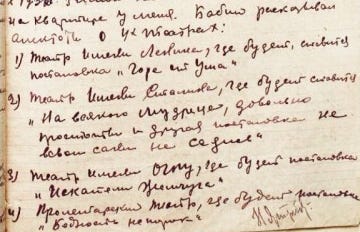 на квартире у меня. Бабин рассказывал
анекдоты о 4х театрах:
1) Театр имени Ленина, где будет, ставится
постановка „Горе от Ума"
2) Театр имени Сталина, где будет ставится
„На всякого мудреца, довольно
простоты и другая постановка не
в свои сани не садись"
3) Театр имени ОГПУ, где будет постановка
„Искатели Жемчуга"
4) Пролетарский театр, где будет постановка
„Бедность не порок"